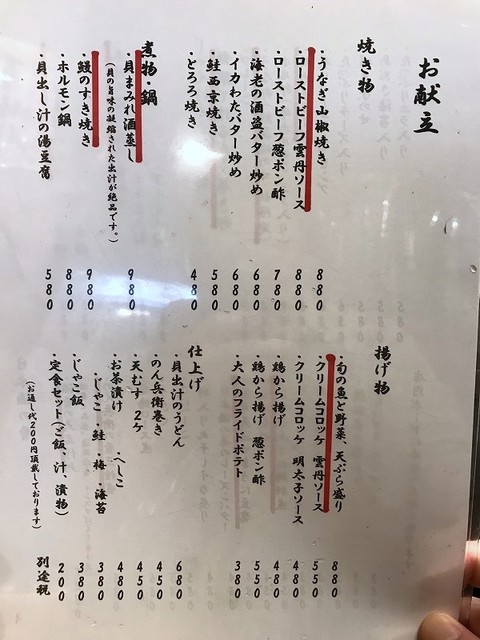 お献立
焼き物
・うなぎ山椒焼き 880
・ローストビーフ雲丹ソース 880
・ローストビーフ葱ポン酢 780
・海老の酒盗バター炒め 680
・イカわたバター炒め 680
・鮭西京焼き 580
・とろろ焼き 480
煮物・鍋
・貝まみれ酒蒸し 980
(貝の旨味の凝縮された出汁が絶品です。)
・鰻のすき焼き 980
・ホルモン鍋 880
・貝出し汁の湯豆腐 580
揚げ物
・旬の魚と野菜、天ぷら盛り 880
・クリームコロッケ 雲丹ソース 550
・クリームコロッケ 明太子ソース 480
・鶏から揚げ 480
・鶏から揚げ 葱ポン酢 550
・大人のフライドポテト 380
仕上げ
・貝出汁のうどん 680
・のん兵衛巻き 450
・天むす 2ケ 450
・お茶漬け ・へしこ 480
・じゃこ・鮭・梅・海苔 380
・じゃこ飯 380
・定食セット(ご飯、汁、漬物) 200
(お通し代200円頂戴しております)
別途税